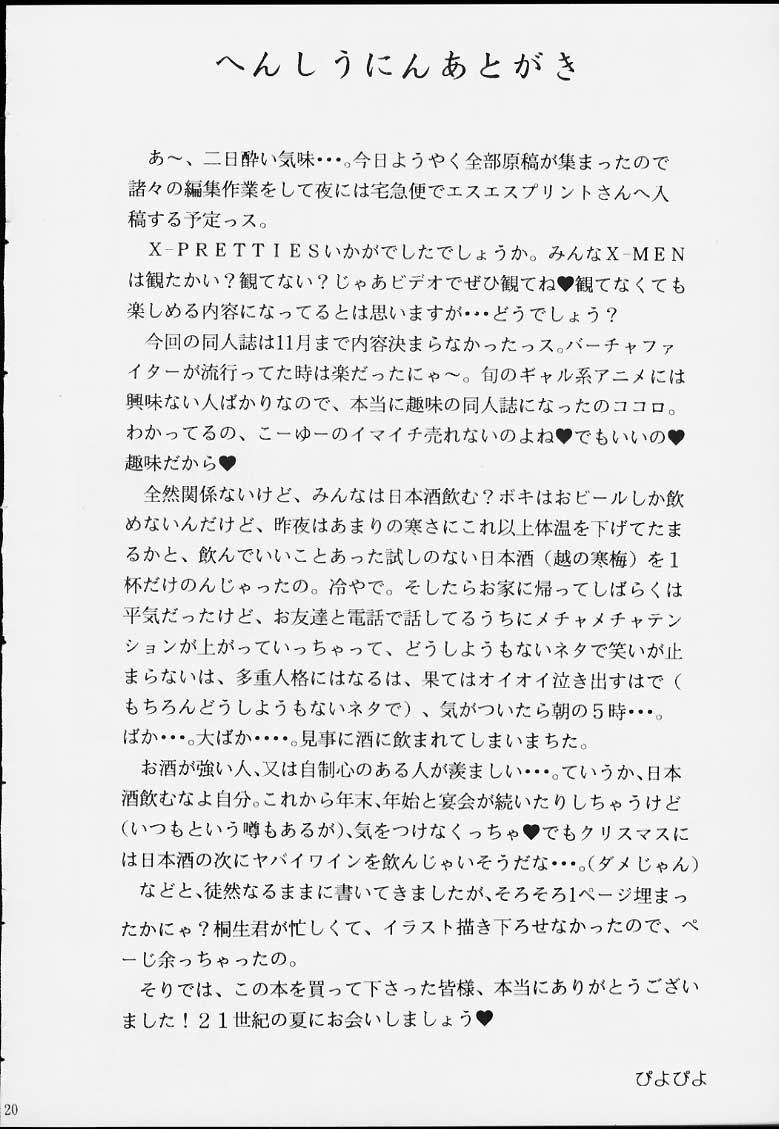 へんしうにんあとがき
あ〜、二日酔い気味・・・。今日ようやく全部原稿が集まったので
諸々の編集作業をして夜には宅急便でエスエスプリントさんへ入
稿する予定っス。
X-PRETTIESいかがでしたでしょうか。みんなX-MEN
は観たかい？観てない？じゃあビデオでぜひ観てね♥観てなくても
楽しめる内容になってるとは思いますが・・・どうでしょう？
今回の同人誌は11月まで内容決まらなかったっス。バーチャファ
イターが流行ってた時は楽だったにゃ〜。旬のギャル系アニメには
興味ない人ばかりなので、本当に趣味の同人誌になったのココロ。
わかってるの、こーゆーのイマイチ売れないのよね♥でもいいの♥
趣味だから♥
全然関係ないけど、みんなは日本酒飲む？ボキはおビールしか飲
めないんだけど、昨夜はあまりの寒さにこれ以上体温を下げてたま
るかと、飲んでいいことあった試しのない日本酒（越の寒梅）を１
杯だけのんじゃったの。冷やで。そしたらお家に帰ってしばらくは
平気だったけど、お友達と電話で話してるうちにメチャメチャテン
ションが上がっていっちゃって、どうしようもないネタで笑いが止
まらないは、多重人格にはなるは、果てはオイオイ泣き出すはで（
もちろんどうしようもないネタで）、気がついたら朝の５時・・・。
ばか・・・。大ばか・・・・。見事に酒に飲まれてしまいまちた。
お酒が強い人、又は自制心のある人が羨ましい・・・。ていうか、日本
酒飲むなよ自分。これから年末、年始と宴会が続いたりしちゃうけど
（いつもという噂もあるが）、気をつけなくっちゃ♥でもクリスマスに
は日本酒の次にヤバイワインを飲んじゃいそうだな・・・。（ダメじゃん）
などと、徒然なるままに書いてきましたが、そろそろ1ページ埋まっ
たかにゃ？桐生君が忙しくて、イラスト描き下ろせなかったので、ペ
ーじ余っちゃったの。
そりでは、この本を買って下さった皆様、本当にありがとうござい
ました！２１世紀の夏にお会いしましょう♥
ぴよぴよ
20